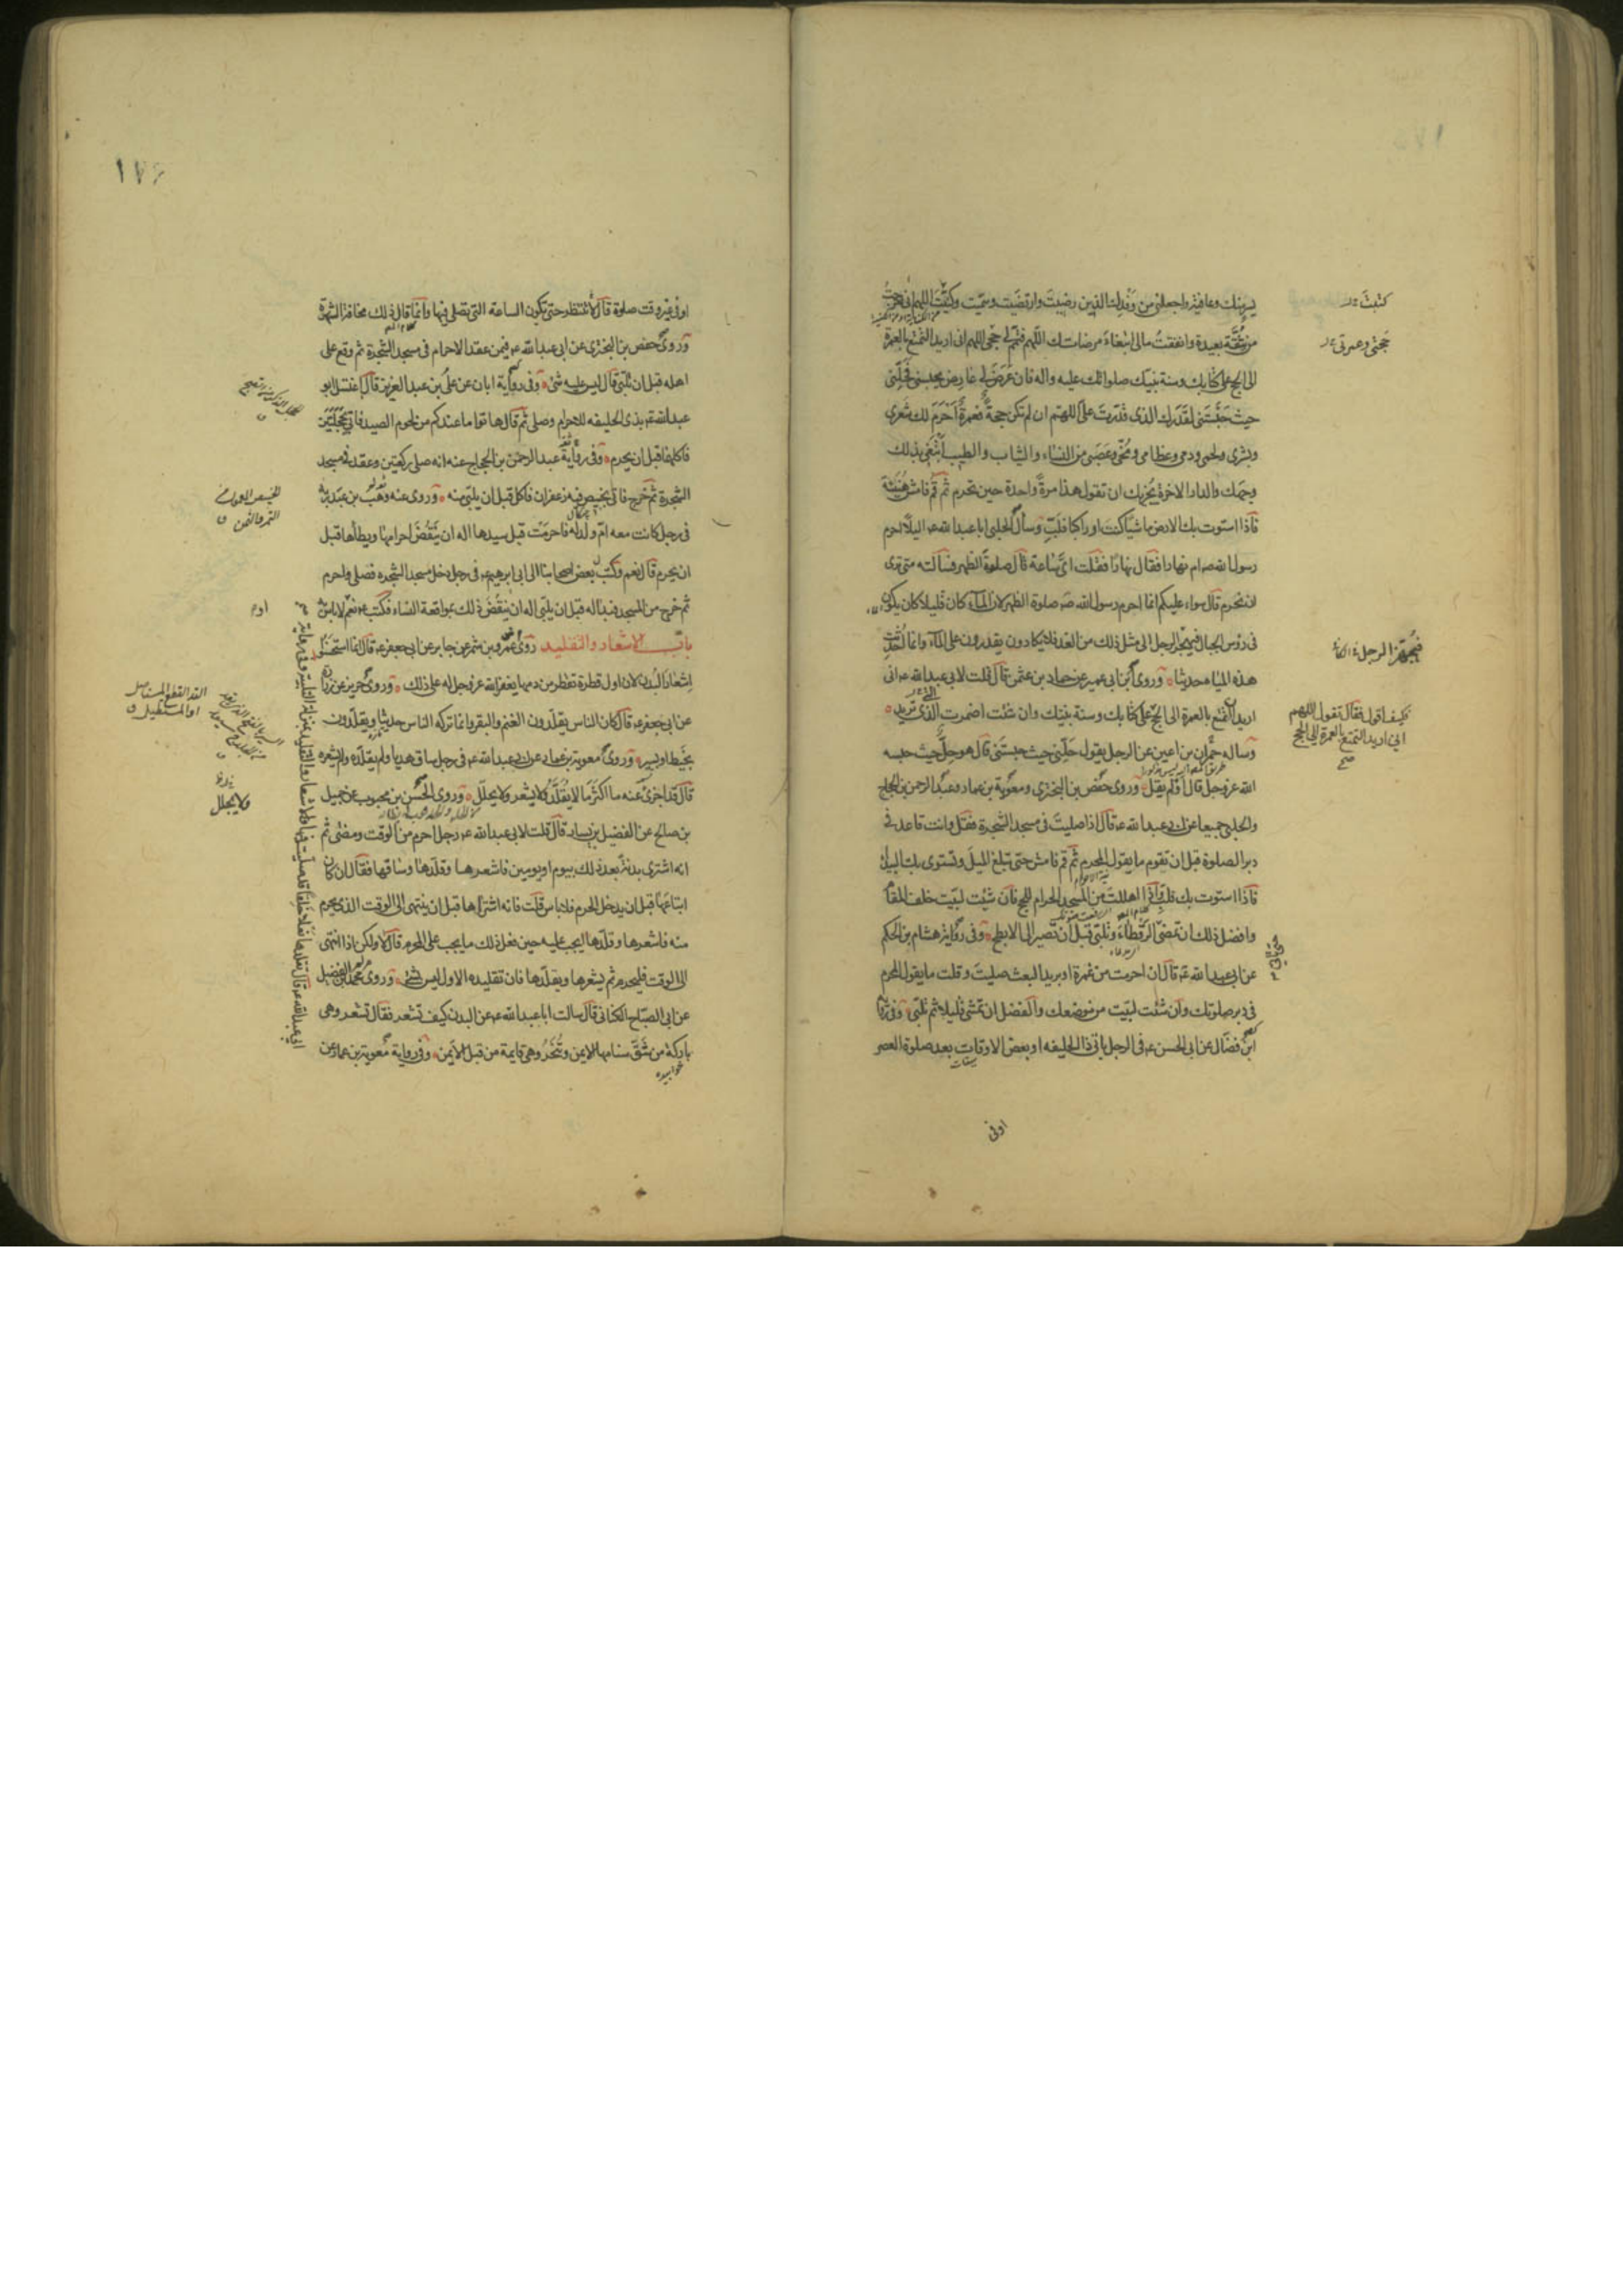 يسر منك وعافية واجعلني من وفدك الذين رضيت وارتضيت وسميت وكتبت اللهم اني خرجت
من شقة بعيدة وانفقت مالي ابتغاء مرضاتك اللهم فتمم لي حجي اللهم اني اريد التمتع بالعمرة
الى الحج على كتابك وسنة نبيك صلواتك عليه واله فان عرض لي عارض يحبسني فحلني
حيث حبستني لقدرك الذي قدرت علي اللهم ان لم تكن حجة فعمرة احرم لك شعري
وبشري ولحمي ودمي وعظامي ومخي وعصبي من النساء والثياب والطيب ابتغي بذلك
وجهك والدار الاخرة يجزيك ان تقول هذا مرة واحدة حين تحرم ثم قم فامش هنيئة
فاذا استوت بك الارض ماشيا كنت او راكبا فلب وسال الحلبي ابا عبد الله ع اليلا احرم
رسول الله ص ام نهارا فقال نهارا فقلت اي ساعة قال صلوة الظهر فسالته متى ترى
ان نحرم قال سواء عليكم انما احرم رسول الله ص صلوة الظهر لان الماء كان قليلا كان يكون
في رؤس الجبال فيهجر الرجل الى مثل ذلك من الغد فلا يكادون يقدرون على الماء وانما احدثت
هذه المياه حديثا وروى ابن ابي عمير عن حماد بن عثمن قال قلت لابي عبد الله ع اني
اريد ان اتمتع بالعمرة الى الحج على كتابك وسنة نبيك وان شئت اضمرت الذي تريد
وساله حمران بن اعين عن الرجل يقول حلني حيث حبستني قال هو حل حيث حبسه
الله عز وجل قال او لم يقل وروى حفص بن البختري ومعوية بن عمار وعبد الرحمن بن الحجاج
والحلبي جميعا عن ابي عبد الله ع قال اذا صليت في مسجد الشجرة فقل وانت قاعد في
دبر الصلوة قبل ان تقوم ما يقول المحرم ثم قم فامش حتى تبلغ الميل وتستوي بك البيداء
فاذا استوت بك فلب فاذا اهللت من المسجد الحرام للحج فان شئت لبيت خلف المقام
وافضل ذلك ان تمضي الرقطاء وتلبي قبل ان تصير الى الابطح وفي رواية هشام بن الحكم
عن ابي عبد الله ع قال ان احرمت من غمرة او بريد البعث صليت وقلت ما يقول المحرم
في دبر صلوتك وان شئت لبيت من موضعك والفضل ان تمشي قليلا ثم تلبي وفي رواية
ابن فضال عن ابي الحسن ع في الرجل ياتي ذا الحليفه او بعض الاوقات بعد صلوة العصر
اوفي
كتبت
حجتي وعمرتي
فيهجر الرجل
فكيف اقول فقال تقول اللهم
اني اريد التمتع بالعمرة الى الحج
صح
١٧٦
او في غير وقت صلوة قال لا ينتظر حتى تكون الساعة التي تصلى فيها وانما قال ذلك مخافة الشهرة
وروى حفص بن البختري عن ابي عبد الله ع فيمن عقد الاحرام في مسجد الشجرة ثم وقع على
اهله قبل ان يلبي قال ليس عليه شئ وفي رواية ابان عن علي بن عبد العزيز قال اغتسل ابو
عبد الله ع بذي الحليفه للاحرام وصلى ثم قال هاتوا ما عندكم من لحوم الصيد فاتي بحجلتين
فاكلهما قبل ان يحرم وفي رواية عبد الرحمن بن الحجاج عنه انه صلى ركعتين وعقد في مسجد
الشجرة ثم خرج فاتي بخبيص فيه زعفران فاكل قبل ان يلبي منه وروى عنه وهب بن عبد ربه
في رجل كانت معه ام ولد له فاحرمت قبل سيدها اله ان ينقض احرامها ويطاها قبل
ان يحرم قال نعم وكتب بعض اصحابنا الى ابي ابرهيم ع في رجل دخل مسجد الشجره فصلى واحرم
ثم خرج من المسجد فبدا له قبل ان يلبي اله ان ينقض ذلك بمواقعة النساء فكتب ع نعم لا باس
باب الاشعار والتقليد روى عمرو بن شمر عن جابر عن ابي جعفر ع قال انما استحسنوا
اشعار البدن لان اول قطرة تقطر من دمها يغفر الله عز وجل له على ذلك وروى حريز عن زرارة
عن ابي جعفر ع قال كان الناس يقلدون الغنم والبقر وانما تركه الناس حديثا ويقلدون
بخيط او بسير وروى معوية بن عمار عن ابي عبد الله ع في رجل ساق هديا ولم يقلده ولم يشعره
قال قد اجزى عنه ما اكثر ما لا يقلد ولا يشعر ولا يجلل وروى الحسن بن محبوب عن جميل
بن صالح عن الفضيل بن يسار قال قلت لابي عبد الله ع رجل احرم من الوقت ومضى ثم
انه اشترى بدنة بعد ذلك بيوم او يومين فاشعرها وقلدها وساقها فقال ان كان
ابتاعها قبل ان يدخل الحرم فلا باس قلت فانه اشتراها قبل ان ينتهي الى الوقت الذي يحرم
منه فاشعرها وقلدها ايجب عليه حين فعل ذلك ما يجب على المحرم قال لا ولكن اذا انتهى
الى الوقت فليحرم ثم يشعرها ويقلدها فان تقليده الاول ليس بشئ وروى محمد بن الفضيل
عن ابي الصباح الكناني قال سالت ابا عبد الله ع عن البدن كيف تشعر فقال تشعر وهي
باركة من شق سنامها الايمن وتنحر وهي قايمة من قبل الايمن وفي رواية معوية بن عمار عن
ولا يجلل